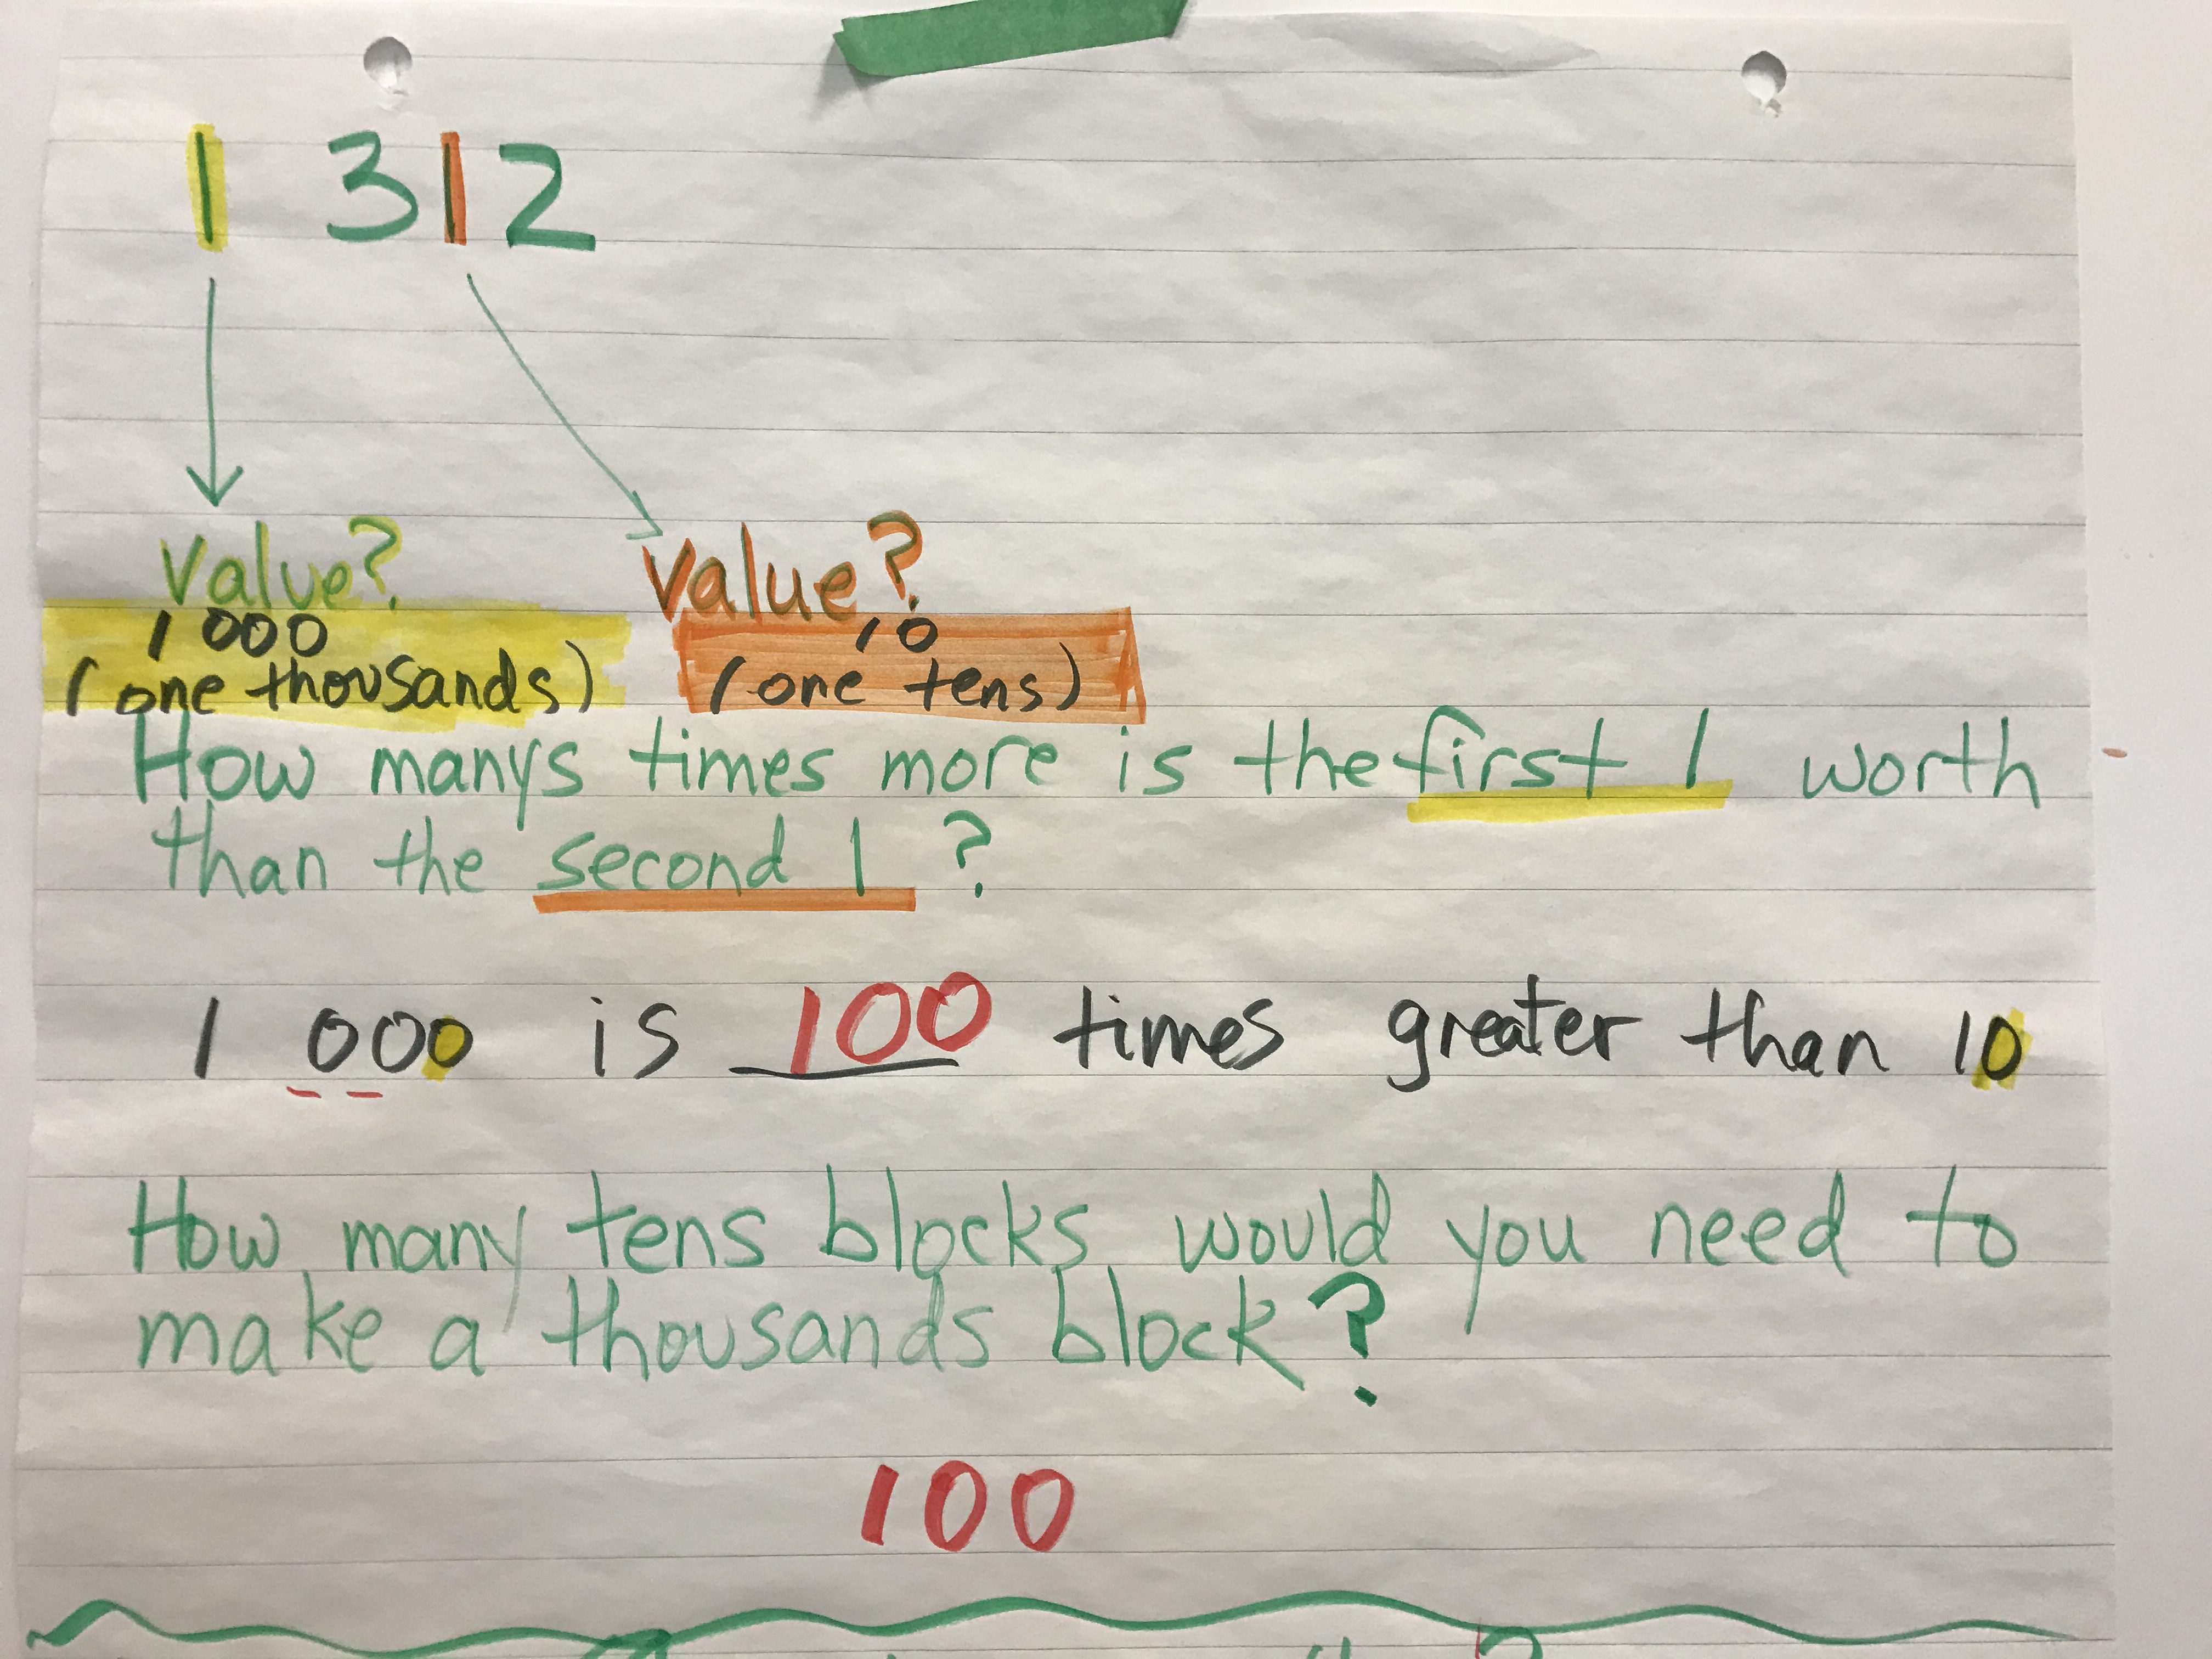 1 312
Value? Value?
1 000 10
(one thousands) (one tens)
How manys times more is the first 1 worth
than the second 1 ?
1 000 is 100 times greater than 10
How many tens blocks would you need to
make a thousands block?
100